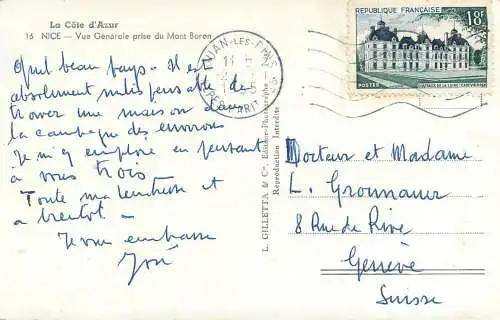 La Côte d'Azur
16 NICE — Vue Générale prise du Mont Boron
Quel beau pays. Il est
absolument indispensable de
trouver une maison dans
la campagne des environs
Je m'y emploie en pensant
à vous trois —
Toute ma tendresse et
à bientôt —
Je vous embrasse
José
L. GILLETTA & Cie, Editeur-Photographe
Reproduction Interdite
JUAN-LES-PINS
REPUBLIQUE FRANÇAISE
18F
POSTES
CHATEAUX DE LA LOIRE (CHEVERNY)
Docteur et Madame
L.
8 Rue de Rive
Genève
Suisse